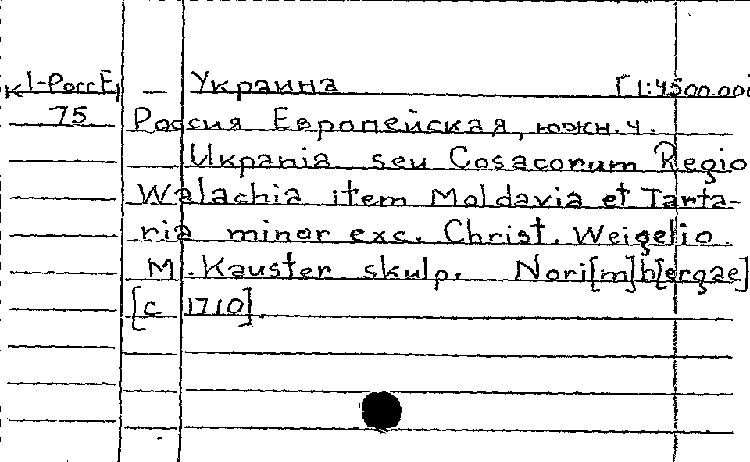 К1-РоссЕ — Украина [1:4500.00
75 Россия Европейская, южн.ч.
Ukrania seu Cosacorum Regio
Walachia item Moldavia et Tarta-
ria minor exc. Christ. Weigelio
M. Kauster skulp. Nori[m]b[ergae]
[c 1710].